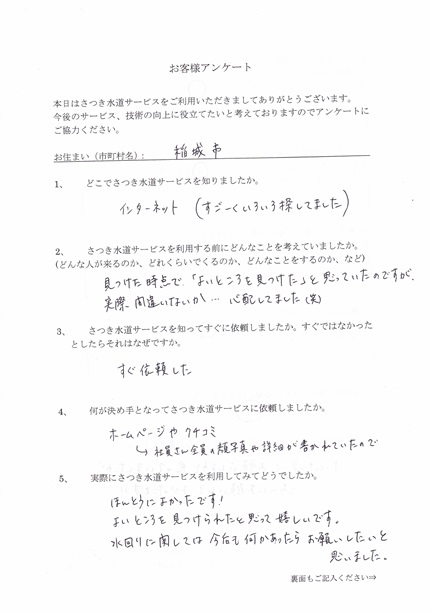 お客様アンケート
本日はさつき水道サービスをご利用いただきましてありがとうございます。
今後のサービス、技術の向上に役立てたいと考えておりますのでアンケートに
ご協力ください。
お住まい（市町村名）： 稲城市
1、 どこでさつき水道サービスを知りましたか。
インターネット （すごーくいろいろ探してました）
2、 さつき水道サービスを利用する前にどんなことを考えていましたか。
(どんな人が来るのか、どれくらいでくるのか、どんなことをするのか、など)
見つけた時点で「よいところを見つけた」と思っていたのですが、
実際 間違いないか… 心配してました（笑）
3、 さつき水道サービスを知ってすぐに依頼しましたか。すぐではなかった
としたらそれはなぜですか。
すぐ依頼した
4、 何が決め手となってさつき水道サービスに依頼しましたか。
ホームページや クチコミ
↳ 社員さん全員の顔写真や詳細が書かれていたので
5、 実際にさつき水道サービスを利用してみてどうでしたか。
ほんとうによかったです!
よいところを見つけられたと思って嬉しいです。
水回りに関しては 今后も何かあったら お願いしたいと
思いました。
裏面もご記入ください⇒